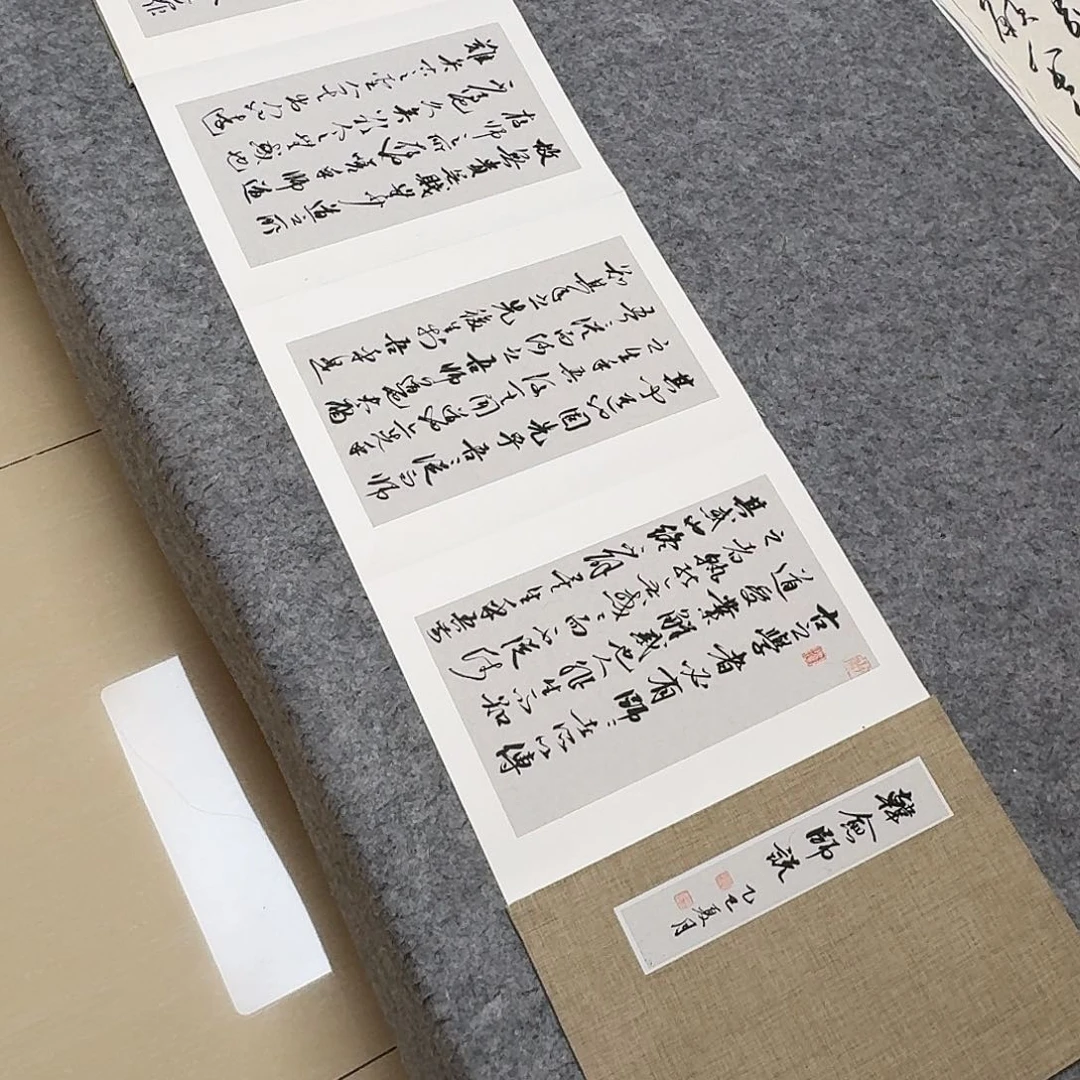 韓愈師說
乙巳夏月
古之學者必有師〻者所以傳
道受業解惑也人非生而知
之者孰能無惑〻而不從師
其為惑也終不解矣生乎吾前
其聞道也固先乎吾〻從而師
之生乎吾後其聞道也亦先乎
吾〻從而師之吾師道也夫庸
知其年之先後生於吾乎是
故無貴無賤無長無少道之所
存師之所存也嗟乎師道
之不傳也久矣欲人之無惑也
難矣古之聖人其出人也遠